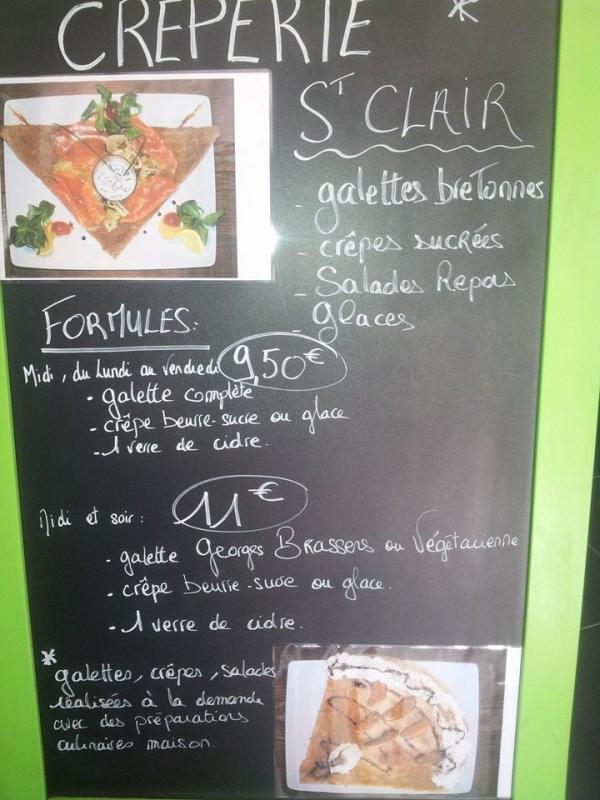 CRÊPERIE *
ST CLAIR
- galettes bretonnes
- crêpes sucrées
- Salades Repas
- glaces
FORMULES:
Midi, du lundi au vendredi 9,50€
- galette complète
- crêpe beurre-sucre ou glace
- 1 verre de cidre.
Midi et soir: 11€
- galette Georges Brassens ou Végétarienne
- crêpe beurre-sucre ou glace.
- 1 verre de cidre.
* galettes, crêpes, salades
réalisées à la demande
avec des préparations
culinaires maison.